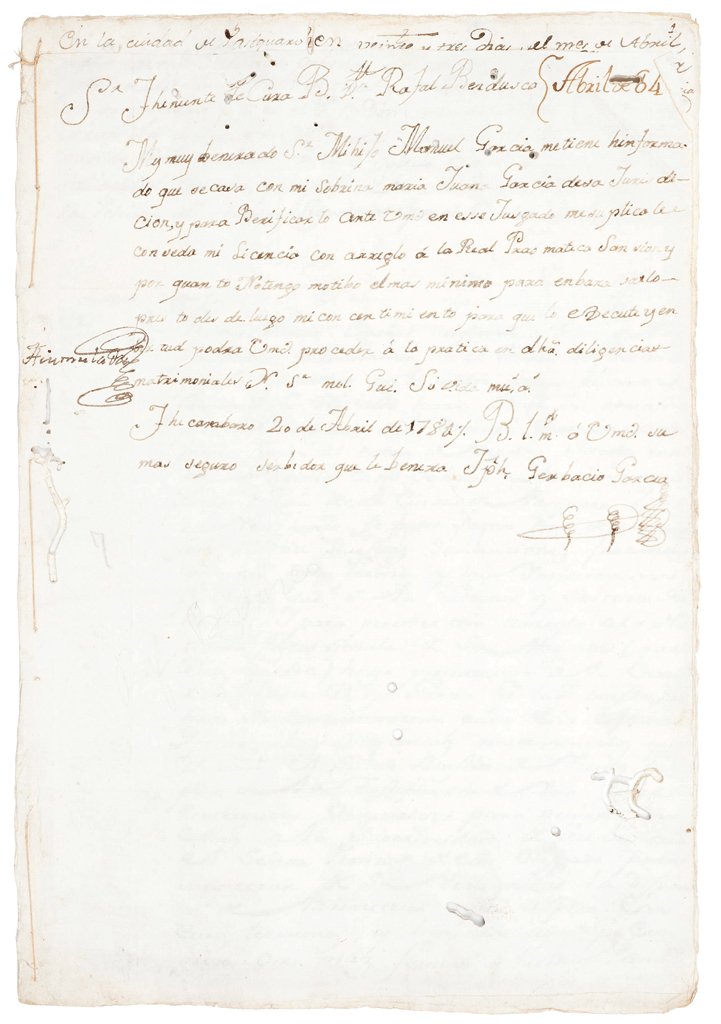 En la ciudad de Pasquaro en veinte y tres Dias del mes de Abril,
Sr. Theniente de Cura B. Dn. Rafal Berdusco Abril de 84
My muy benerado Sr. Mihijo Manuel Garcia me tiene hinforma-
do que se casa con mi Sobrina maria Juana Garcia de sa Juris di-
cion, y para Berificarlo ante Vmd en esse Jusgado me suplica le
conseda mi Licencia con arreglo á la Real Pracmatica Sansion y
por quanto No tengo motibo el mas minimo para enbarasarlo
pres to des de luego mi con centimiento para que lo execute y en
tud podra Vmd. proceder á lo pratica en dhã. diligencias
matrimoniales N. Sr. mol. Gue. Su vida mus. as.
Thecambaro 20 de Abril de 1784. B. l. m. á Vmd. su
mas seguro serbidor que le benera Jph. Gerbacio Garcia